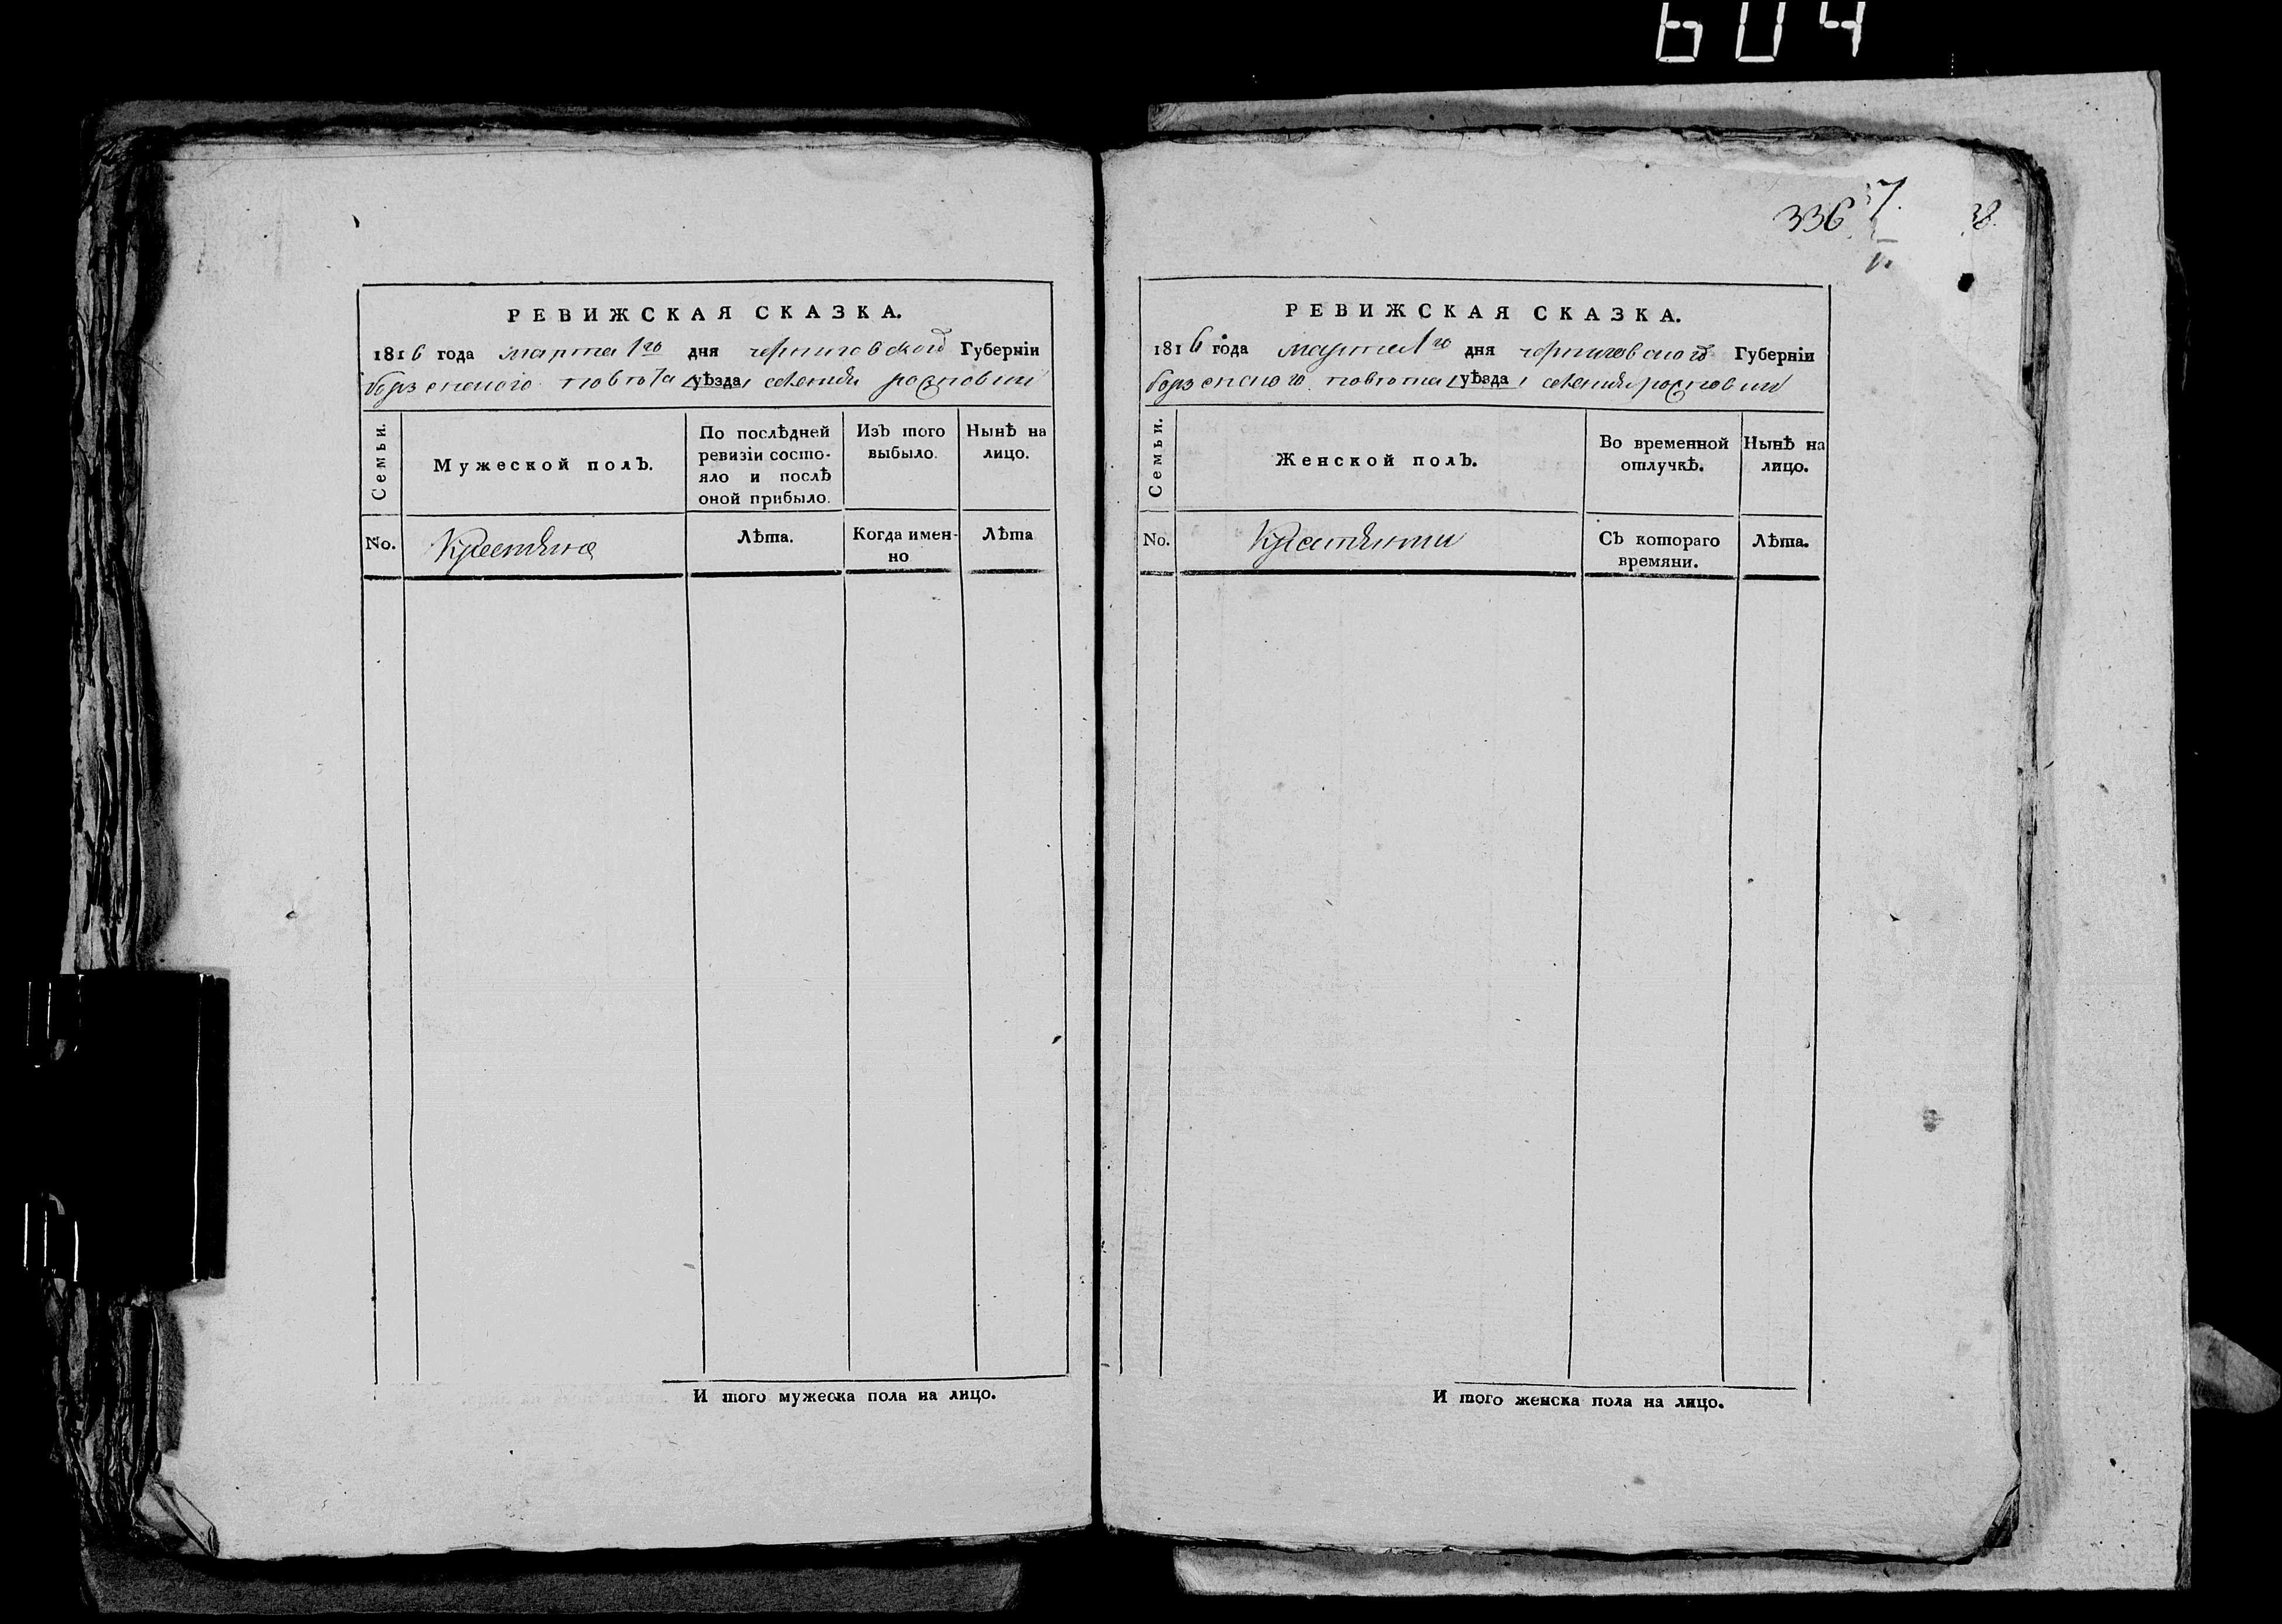 604
336
38.
РЕВИЖСКАЯ СКАЗКА.
1816 года марта 1го дня черниговской Губерніи
борзенского повѣта уѣзда селенія
Семьи.
Мужеской полъ.
По послѣдней ревизіи состо-
яло и послѣ оной прибыло.
Изъ того выбыло.
Нынѣ на лицо.
No.
Крестяне
Лѣта.
Когда имен-
но
Лѣта
И того мужеска пола на лицо.
РЕВИЖСКАЯ СКАЗКА.
1816 года марта 1го дня черниговской Губерніи
борзенского повета уѣзда селенія
Семьи.
Женской полъ.
Во временной отлучкѣ.
Нынѣ на лицо.
No.
Крестянки
Съ котораго времяни.
Лѣта.
И того женска пола на лицо.